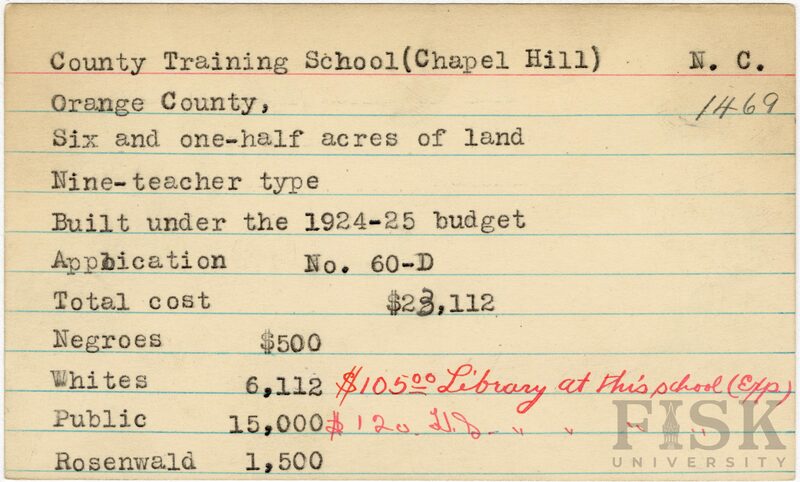 County Training School(Chapel Hill) N. C.
Orange County, 1469
Six and one-half acres of land
Nine-teacher type
Built under the 1924-25 budget
Application No. 60-D
Total cost $23,112
Negroes $500
Whites 6,112 $105.00 Library at this school (Exp)
Public 15,000 $120 H.S. " " " "
Rosenwald 1,500
FISK
UNIVERSITY